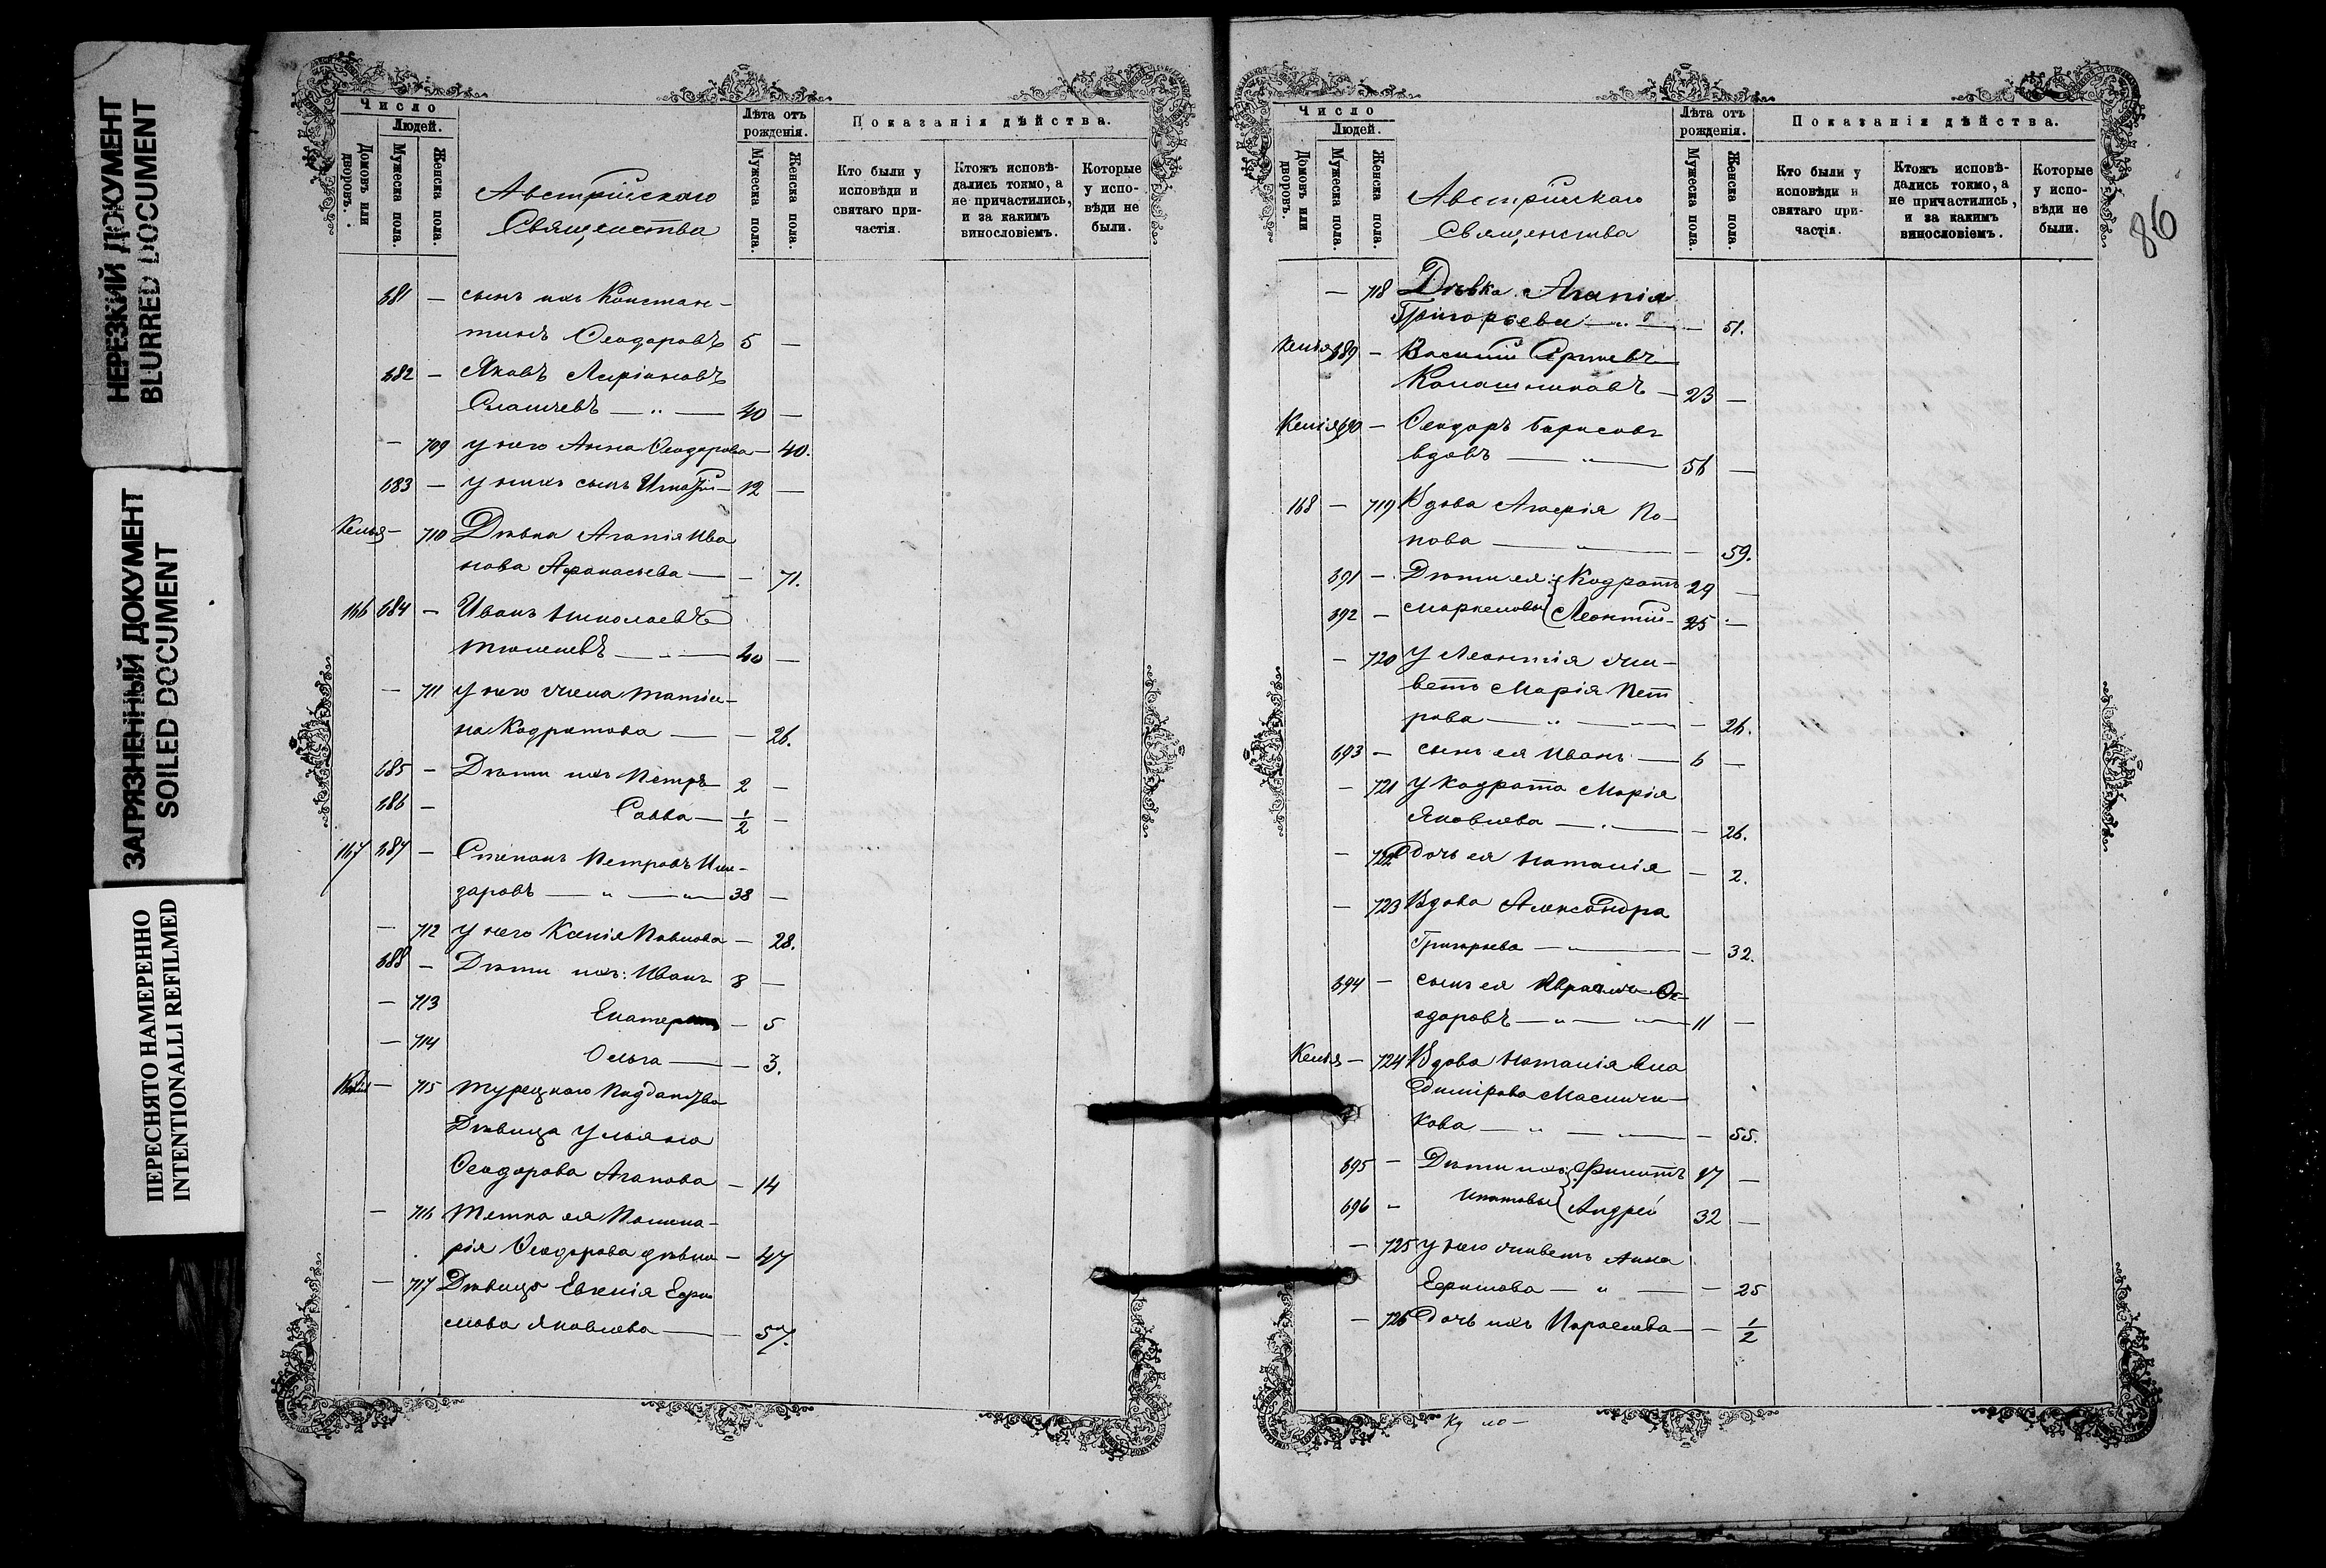 НЕРЕЗКИЙ ДОКУМЕНТ
BLURRED DOCUMENT
ЗАГРЯЗНЕННЫЙ ДОКУМЕНТ
SOILED DOCUMENT
ПЕРЕСНЯТО НАМЕРЕННО
INTENTIONALLI REFILMED
Число
Людей.
Домовъ или дворовъ.
Мужеска пола.
Женска пола.
Австрійскаго
Священства
Лѣта отъ рожденія.
Мужеска пола.
Женска пола.
Показанія дѣйства.
Кто были у исповѣди и святаго причастія.
Ктожъ исповѣдались токмо, а не причастились, и за какимъ винословіемъ.
Которые у исповѣди не были.
681 — сынъ ихъ Констан-
тинъ Ѳеодоровъ 5 —
682 — Яковъ
40 —
— 709 у него Анна Ѳеодорова — 40.
683 — у нихъ сынъ Игнатій — 12 —
Келья — 710 Дѣвка Агапія Ива
нова Афанасьева — — 71.
166 684 — Иванъ Николаевъ
Тюленевъ — 40 —
— 711 у него жена Татіа-
на Кодратова — — 26.
685 — Дѣти ихъ Петръ 2 —
686 — Савва — 1/2 —
167 687 — Степанъ Петровъ
заровъ — " — " — 38 —
— 712 у него Ксенія Павлова — 28.
688 — Дѣти ихъ: Иванъ 8 —
— 713 Екатерина — 5
— 714 Ольга — — 3.
— 715 Турецкаго Подданства
Дѣвица Ульяна
Ѳеодорова Агапова — 14
— 716 Тетка ея Пелика-
рія Ѳеодорова дѣвка — 47
— 717 Дѣвица Евгенія Ефи
мова Яковлева — — 57.
Число
Людей.
Домовъ или дворовъ.
Мужеска пола.
Женска пола.
Австрійскаго
Священства
Лѣта отъ рожденія.
Мужеска пола.
Женска пола.
Показанія дѣйства.
Кто были у исповѣди и святаго причастія.
Ктожъ исповѣдались токмо, а не причастились, и за какимъ винословіемъ.
Которые у исповѣди не были.
86
— 718 Дѣвка Агапія
Григорьева — " — — 51.
Келія 689 — Василій Сергѣевъ
Калашниковъ — 23 —
Келія 690 — Ѳеодоръ Борисовъ
вдовъ — " — 56 —
168 — 719 Вдова По-
пова — " — — 59.
691 — Дѣти ея: Кодратъ 29 —
692 — Маркеловы Леонтій — 25 —
— 720 У Леонтія жи-
ветъ Марія Пет
рова — " — — 26.
693 — сынъ ея Иванъ — 6 —
— 721 у Кодрата Марія
Яковлева — " — — 26.
— 722 дочь ея Наталія — 2.
— 723 Вдова Александра
Григорьева — " — — 32.
694 — сынъ ея Ѳе-
одоровъ — " — " — 11 —
Келья — 724 Вдова Наталія Вла
димірова Маслени-
кова — " — " — — 55.
695 — Дѣти ихъ: Филатъ 17 —
696 — Ипатовы Андрей 32 —
— 725 у него живетъ Анна
Ефимова — " — — 25
— 726 дочь ихъ Парасева — — 1/2